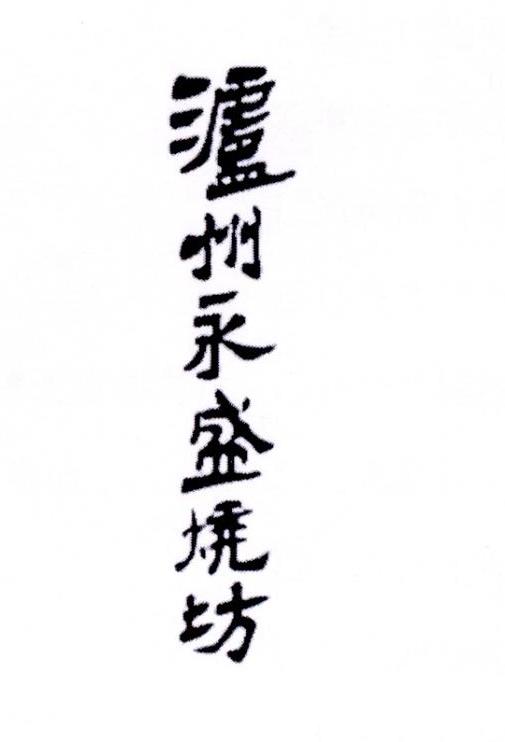 瀘州永盛燒坊